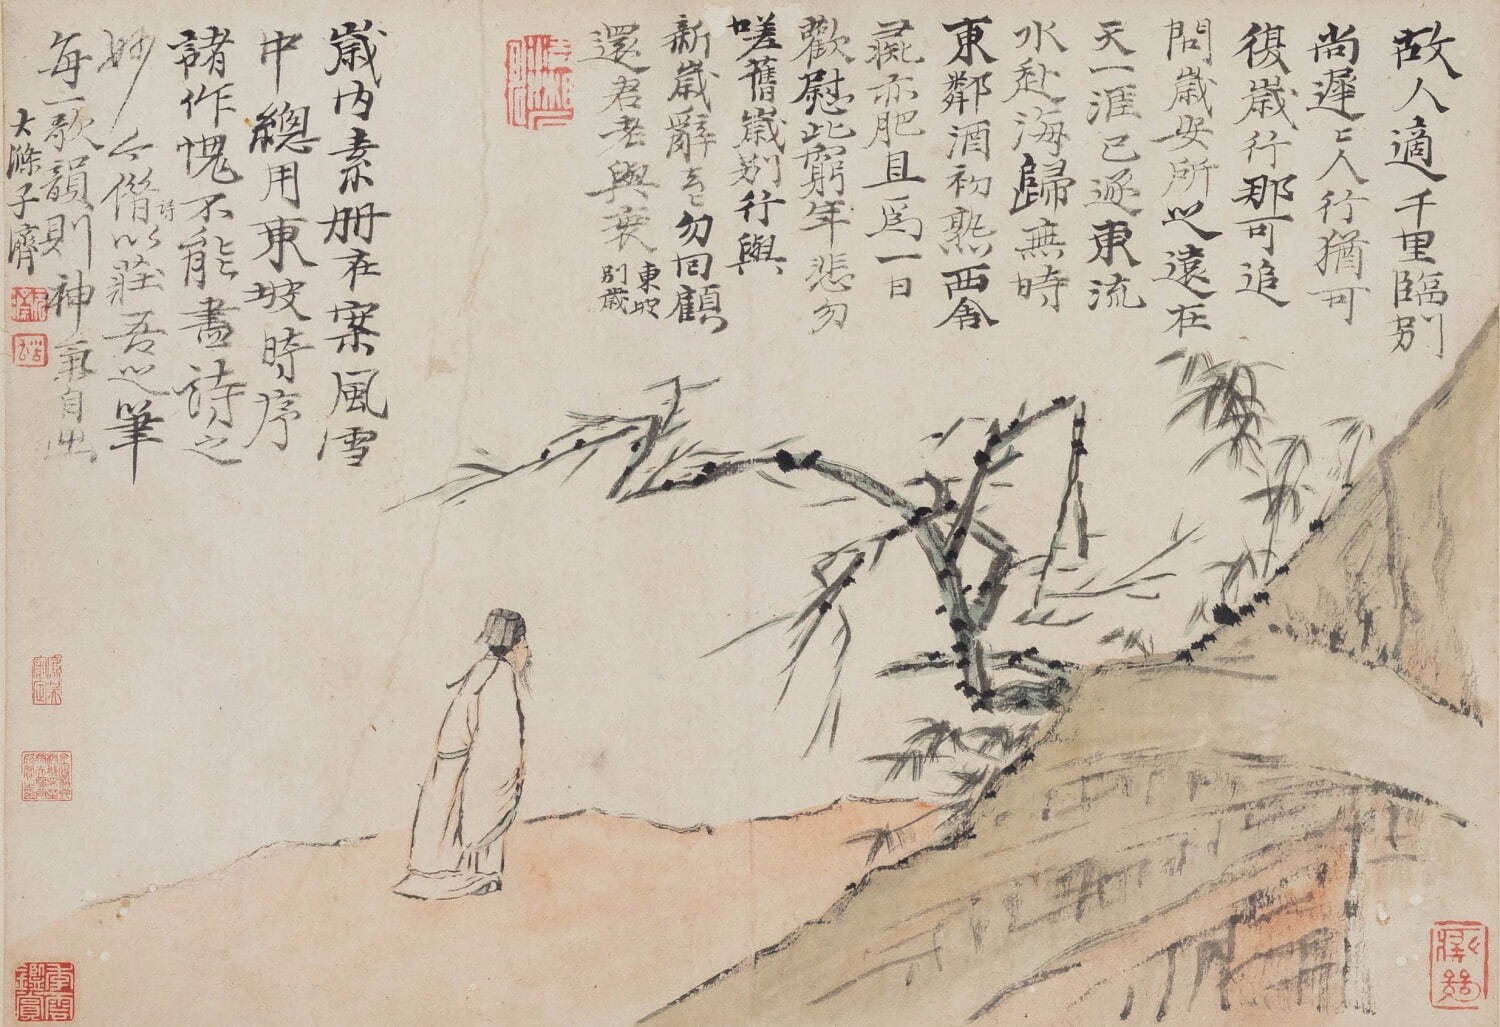 故人適千里臨別
尚遲〻人行猶可
復歲行那可追
問歲安所之遠在
天一涯已逐東流
水赴海歸無時
東鄰酒初熟西舍
彘亦肥且為一日
歡慰此窮年悲勿
嗟舊歲別行與
新歲辭去〻勿囘顧
還君老與衰
東坡
別歲
歲內素册在案風雪
中總用東坡時序
諸作愧不能盡詩之
妙今僭以詩莊吾之筆
每一歌韻則神氣自出
大滌子濟